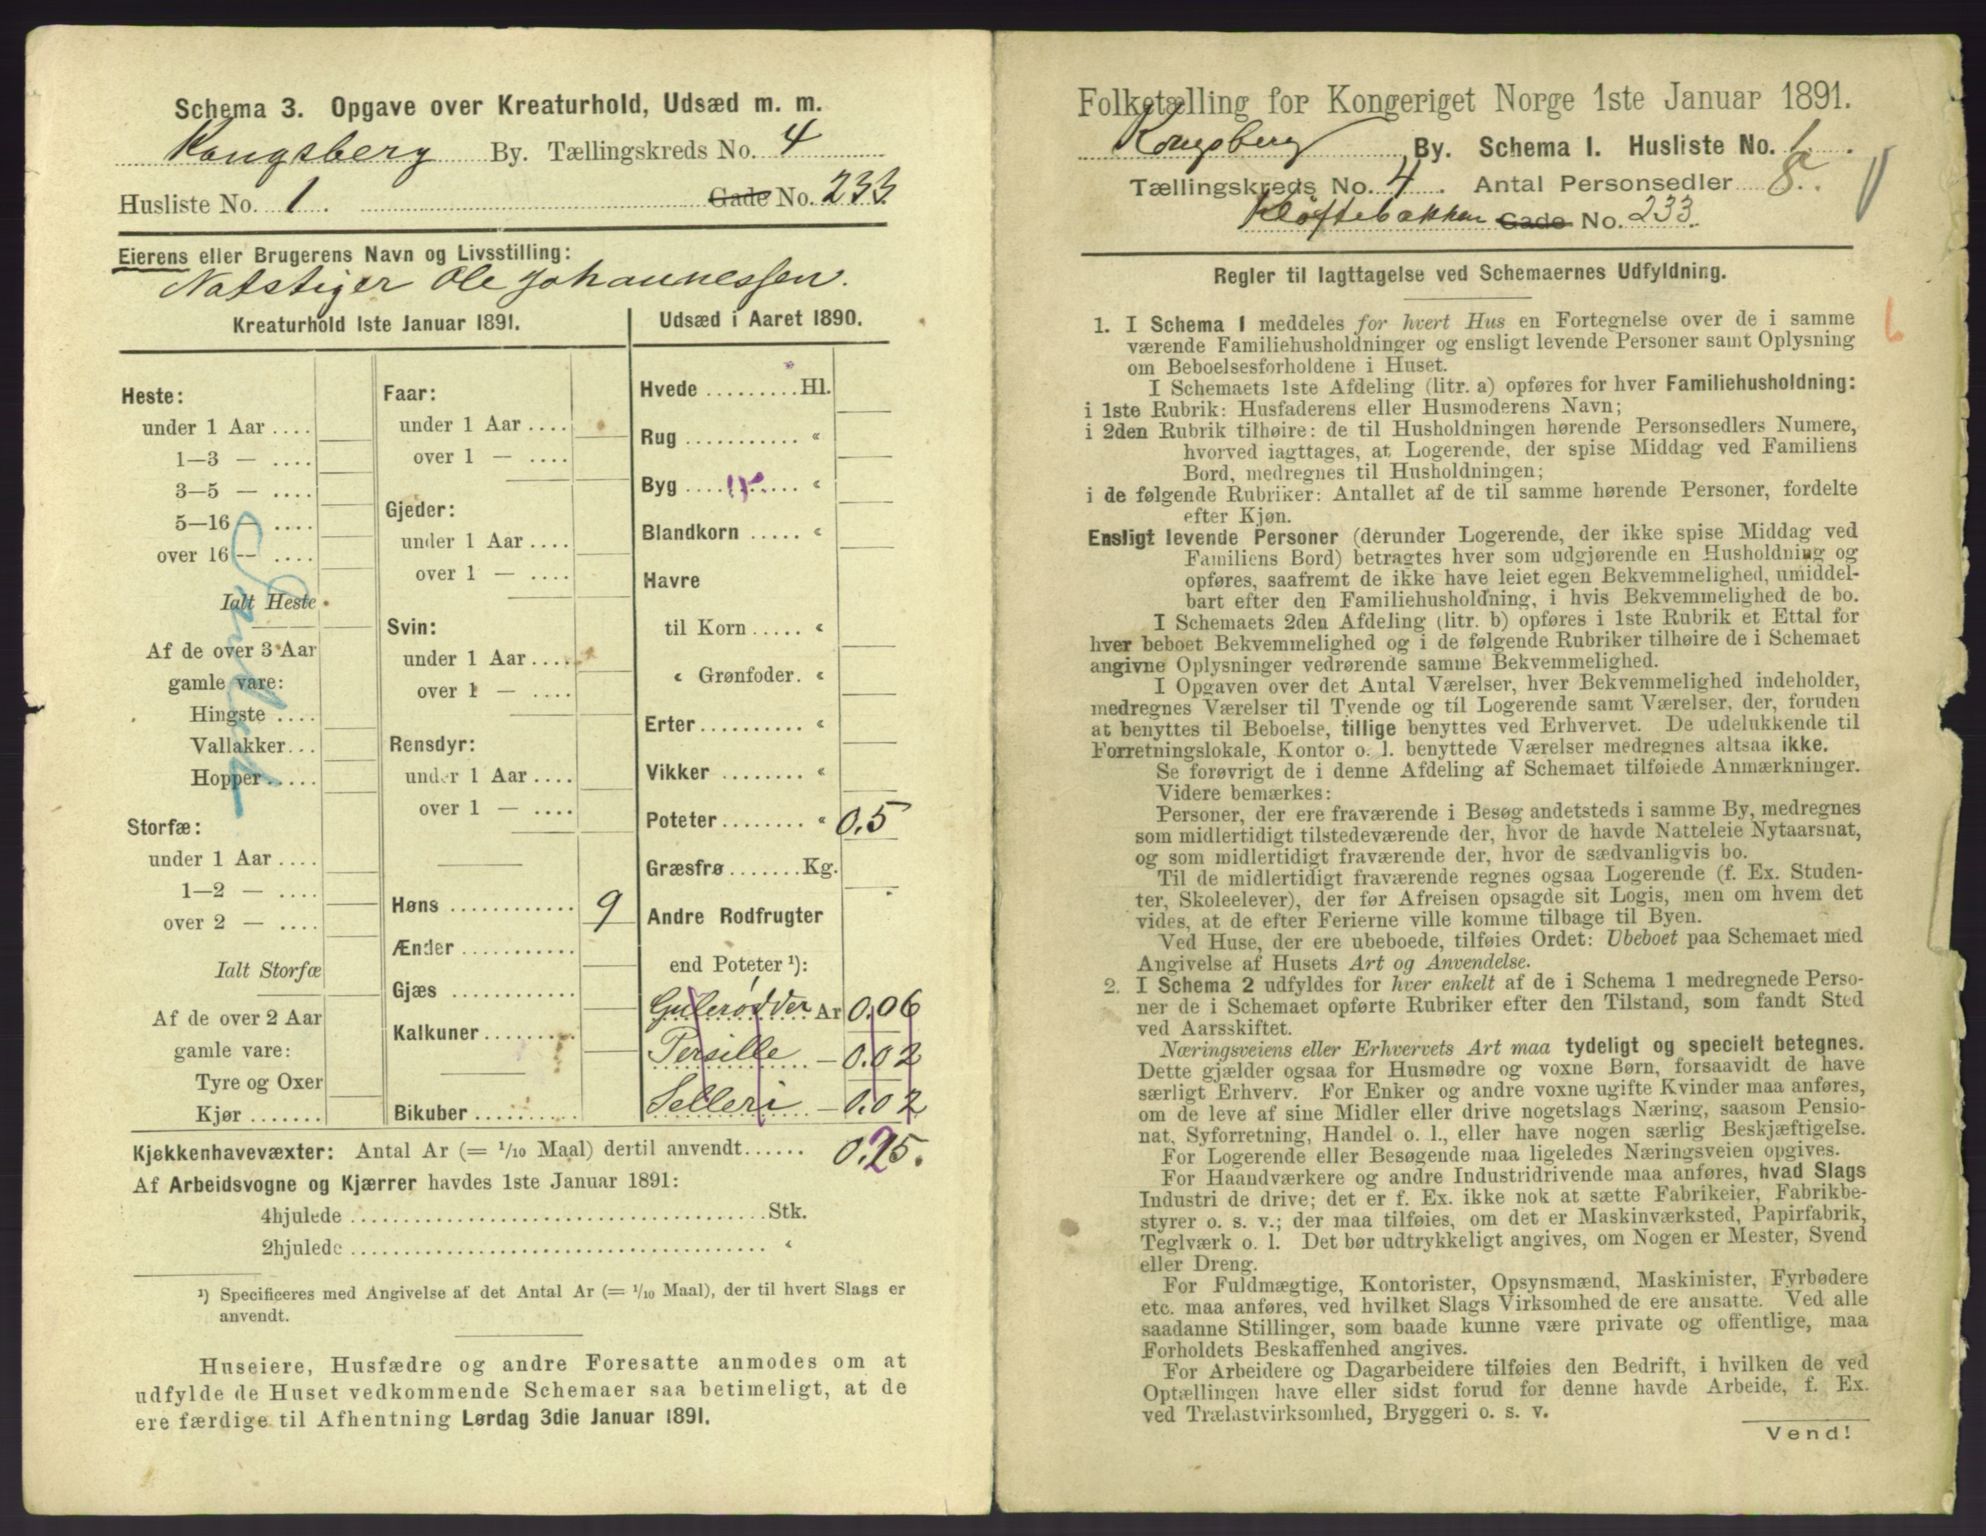 Schema 3. Opgave over Kreaturhold, Udsæd m. m.
Kongsberg By. Tællingskreds No. 4
Husliste No. 1. Gade No. 233
Eierens eller Brugerens Navn og Livsstilling:
Natstiger Ole Johannessen.
Kreaturhold 1ste Januar 1891.
Heste:
under 1 Aar ....
1—3 — ....
3—5 — ....
5—16 — ....
over 16 — ....
Ialt Heste
Af de over 3 Aar
gamle vare:
Hingste ....
Vallakker...
Hopper.....
Storfæ:
under 1 Aar ....
1—2 — ....
over 2 — ....
Ialt Storfæ
Af de over 2 Aar
gamle vare:
Tyre og Oxer
Kjør ......
Faar:
under 1 Aar ....
over 1 — ....
Gjeder:
under 1 Aar ....
over 1 — ....
Svin:
under 1 Aar ....
over 1 — ....
Rensdyr:
under 1 Aar ....
over 1 — ....
Høns ............ 9
Ænder ...........
Gjæs ............
Kalkuner.........
Bikuber ..........
Udsæd i Aaret 1890.
Hvede .........Hl.
Rug ........... “
Byg ........... “
Blandkorn ..... “
Havre
til Korn ..... “
“ Grønfoder. “
Erter.......... “
Vikker ........ “
Poteter........ “ 0.5
Græsfrø .......Kg.
Andre Rodfrugter
end Poteter ¹):
Gulerødder Ar 0.06
Persille — 0.02
Selleri — 0.02
Kjøkkenhavevæxter: Antal Ar (= 1/10 Maal) dertil anvendt...... 0.25.
Af Arbeidsvogne og Kjærrer havdes 1ste Januar 1891:
4hjulede ......................................Stk.
2hjulede ...................................... “
¹) Specificeres med Angivelse af det Antal Ar (= 1/10 Maal), der til hvert Slags er
anvendt.
Huseiere, Husfædre og andre Foresatte anmodes om at
udfylde de Huset vedkommende Schemaer saa betimeligt, at de
ere færdige til Afhentning Lørdag 3die Januar 1891.
Folketælling for Kongeriget Norge 1ste Januar 1891.
Kongsberg By. Schema I. Husliste No. 1.
Tællingskreds No. 4. Antal Personsedler 8.
Kløftebakken Gade No. 233.
Regler til Iagttagelse ved Schemaernes Udfyldning.
1. I Schema 1 meddeles for hvert Hus en Fortegnelse over de i samme
værende Familiehusholdninger og ensligt levende Personer samt Oplysning
om Beboelsesforholdene i Huset.
I Schemaets 1ste Afdeling (litr. a) opføres for hver Familiehusholdning:
i 1ste Rubrik: Husfaderens eller Husmoderens Navn;
i 2den Rubrik tilhøire: de til Husholdningen hørende Personsedlers Numere,
hvorved iagttages, at Logerende, der spise Middag ved Familiens
Bord, medregnes til Husholdningen;
i de følgende Rubriker: Antallet af de til samme hørende Personer, fordelte
efter Kjøn.
Ensligt levende Personer (derunder Logerende, der ikke spise Middag ved
Familiens Bord) betragtes hver som udgjørende en Husholdning og
opføres, saafremt de ikke have leiet egen Bekvemmelighed, umiddel-
bart efter den Familiehusholdning, i hvis Bekvemmelighed de bo.
I Schemaets 2den Afdeling (litr. b) opføres i 1ste Rubrik et Ettal for
hver beboet Bekvemmelighed og i de følgende Rubriker tilhøire de i Schemaet
angivne Oplysninger vedrørende samme Bekvemmelighed.
I Opgaven over det Antal Værelser, hver Bekvemmelighed indeholder,
medregnes Værelser til Tyende og til Logerende samt Værelser, der, foruden
at benyttes til Beboelse, tillige benyttes ved Erhvervet. De udelukkende til
Forretningslokale, Kontor o. l. benyttede Værelser medregnes altsaa ikke.
Se forøvrigt de i denne Afdeling af Schemaet tilføiede Anmærkninger.
Videre bemærkes:
Personer, der ere fraværende i Besøg andetsteds i samme By, medregnes
som midlertidigt tilstedeværende der, hvor de havde Natteleie Nytaarsnat,
og som midlertidigt fraværende der, hvor de sædvanligvis bo.
Til de midlertidigt fraværende regnes ogsaa Logerende (f. Ex. Studen-
ter, Skoleelever), der før Afreisen opsagde sit Logis, men om hvem det
vides, at de efter Ferierne ville komme tilbage til Byen.
Ved Huse, der ere ubeboede, tilføies Ordet: Ubeboet paa Schemaet med
Angivelse af Husets Art og Anvendelse.
2. I Schema 2 udfyldes for hver enkelt af de i Schema 1 medregnede Perso-
ner de i Schemaet opførte Rubriker efter den Tilstand, som fandt Sted
ved Aarsskiftet.
Næringsveiens eller Erhvervets Art maa tydeligt og specielt betegnes.
Dette gjælder ogsaa for Husmødre og voxne Børn, forsaavidt de have
særligt Erhverv. For Enker og andre voxne ugifte Kvinder maa anføres,
om de leve af sine Midler eller drive nogetslags Næring, saasom Pensio-
nat, Syforretning, Handel o. l., eller have nogen særlig Beskjæftigelse.
For Logerende eller Besøgende maa ligeledes Næringsveien opgives.
For Haandværkere og andre Industridrivende maa anføres, hvad Slags
Industri de drive; det er f. Ex. ikke nok at sætte Fabrikeier, Fabrikbe-
styrer o. s. v.; der maa tilføies, om det er Maskinværksted, Papirfabrik,
Teglværk o. l. Det bør udtrykkeligt angives, om Nogen er Mester, Svend
eller Dreng.
For Fuldmægtige, Kontorister, Opsynsmænd, Maskinister, Fyrbødere
etc. maa anføres, ved hvilket Slags Virksomhed de ere ansatte. Ved alle
saadanne Stillinger, som baade kunne være private og offentlige, maa
Forholdets Beskaffenhed angives.
For Arbeidere og Dagarbeidere tilføies den Bedrift, i hvilken de ved
Optællingen have eller sidst forud for denne havde Arbeide, f. Ex.
ved Trælastvirksomhed, Bryggeri o. s. v.
Vend!